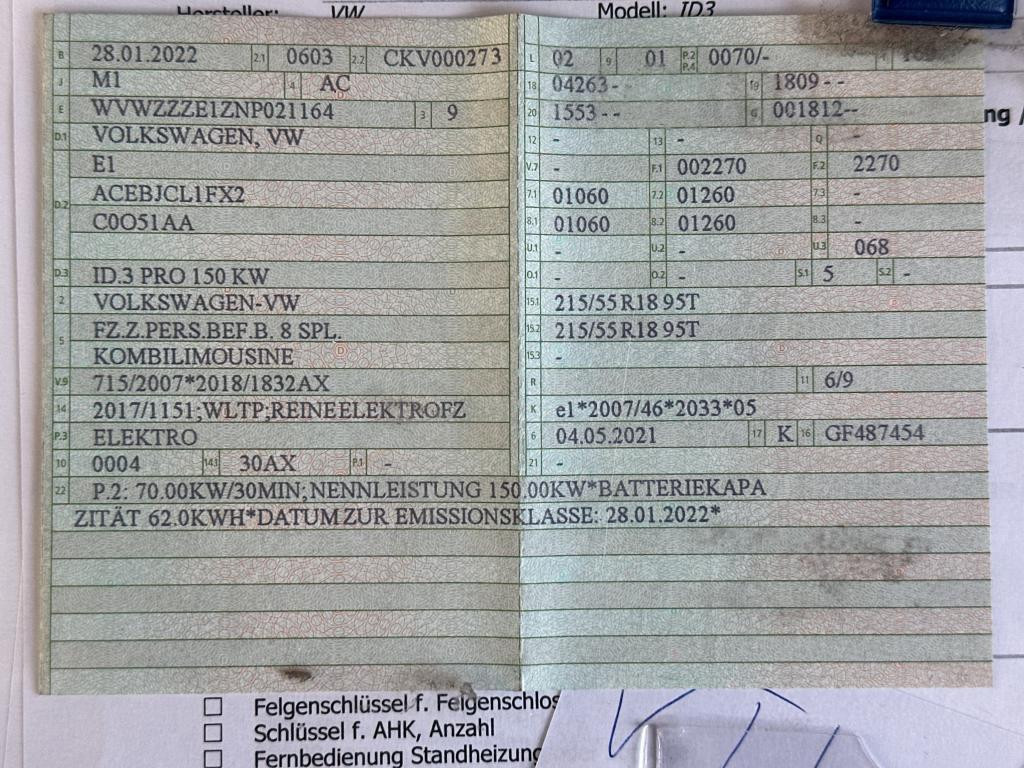 Hersteller: VW Modell: ID3
B 28.01.2022 2.1 0603 2.2 CKV000273 L 02 9 01 P.2 P.4 0070/- T
J M1 4 AC 18 04263-- 19 1809--
E WVWZZZE1ZNP021164 3 9 20 1553-- G 001812--
ng /
D.1 VOLKSWAGEN, VW 12 - 13 - Q -
E1 V.7 - F.1 002270 F.2 2270
D.2 ACEBJCL1FX2 7.1 01060 7.2 01260 7.3 -
C0O51AA 8.1 01060 8.2 01260 8.3 -
U.1 - U.2 - U.3 068
D.3 ID.3 PRO 150 KW O.1 - O.2 - S.1 5 S.2 -
2 VOLKSWAGEN-VW 15.1 215/55 R18 95T
5 FZ.Z.PERS.BEF.B. 8 SPL. 15.2 215/55 R18 95T
KOMBILIMOUSINE 15.3 -
V.9 715/2007*2018/1832AX R 11 6/9
14 2017/1151;WLTP;REINEELEKTROFZ K e1*2007/46*2033*05
P.3 ELEKTRO 6 04.05.2021 17 K 16 GF487454
10 0004 14.1 30AX P.1 - 21 -
22 P.2: 70.00KW/30MIN;NENNLEISTUNG 150.00KW*BATTERIEKAPA
ZITÄT 62.0KWH*DATUM ZUR EMISSIONSKLASSE: 28.01.2022*
Felgenschlüssel f. Felgenschlos
Schlüssel f. AHK, Anzahl
Fernbedienung Standheizung